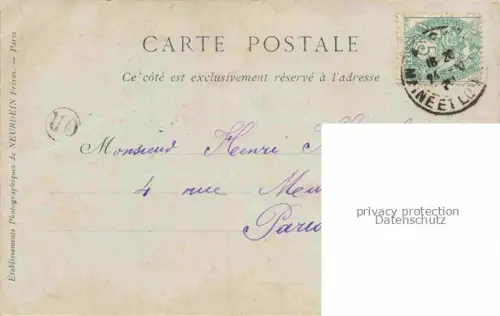 CARTE POSTALE
Ce côté est exclusivement réservé à l'adresse
Etablissements Photographiques de NEURDEIN Frères. — Paris
Monsieur Henri
4 rue
Paris
privacy protection
Datenschutz